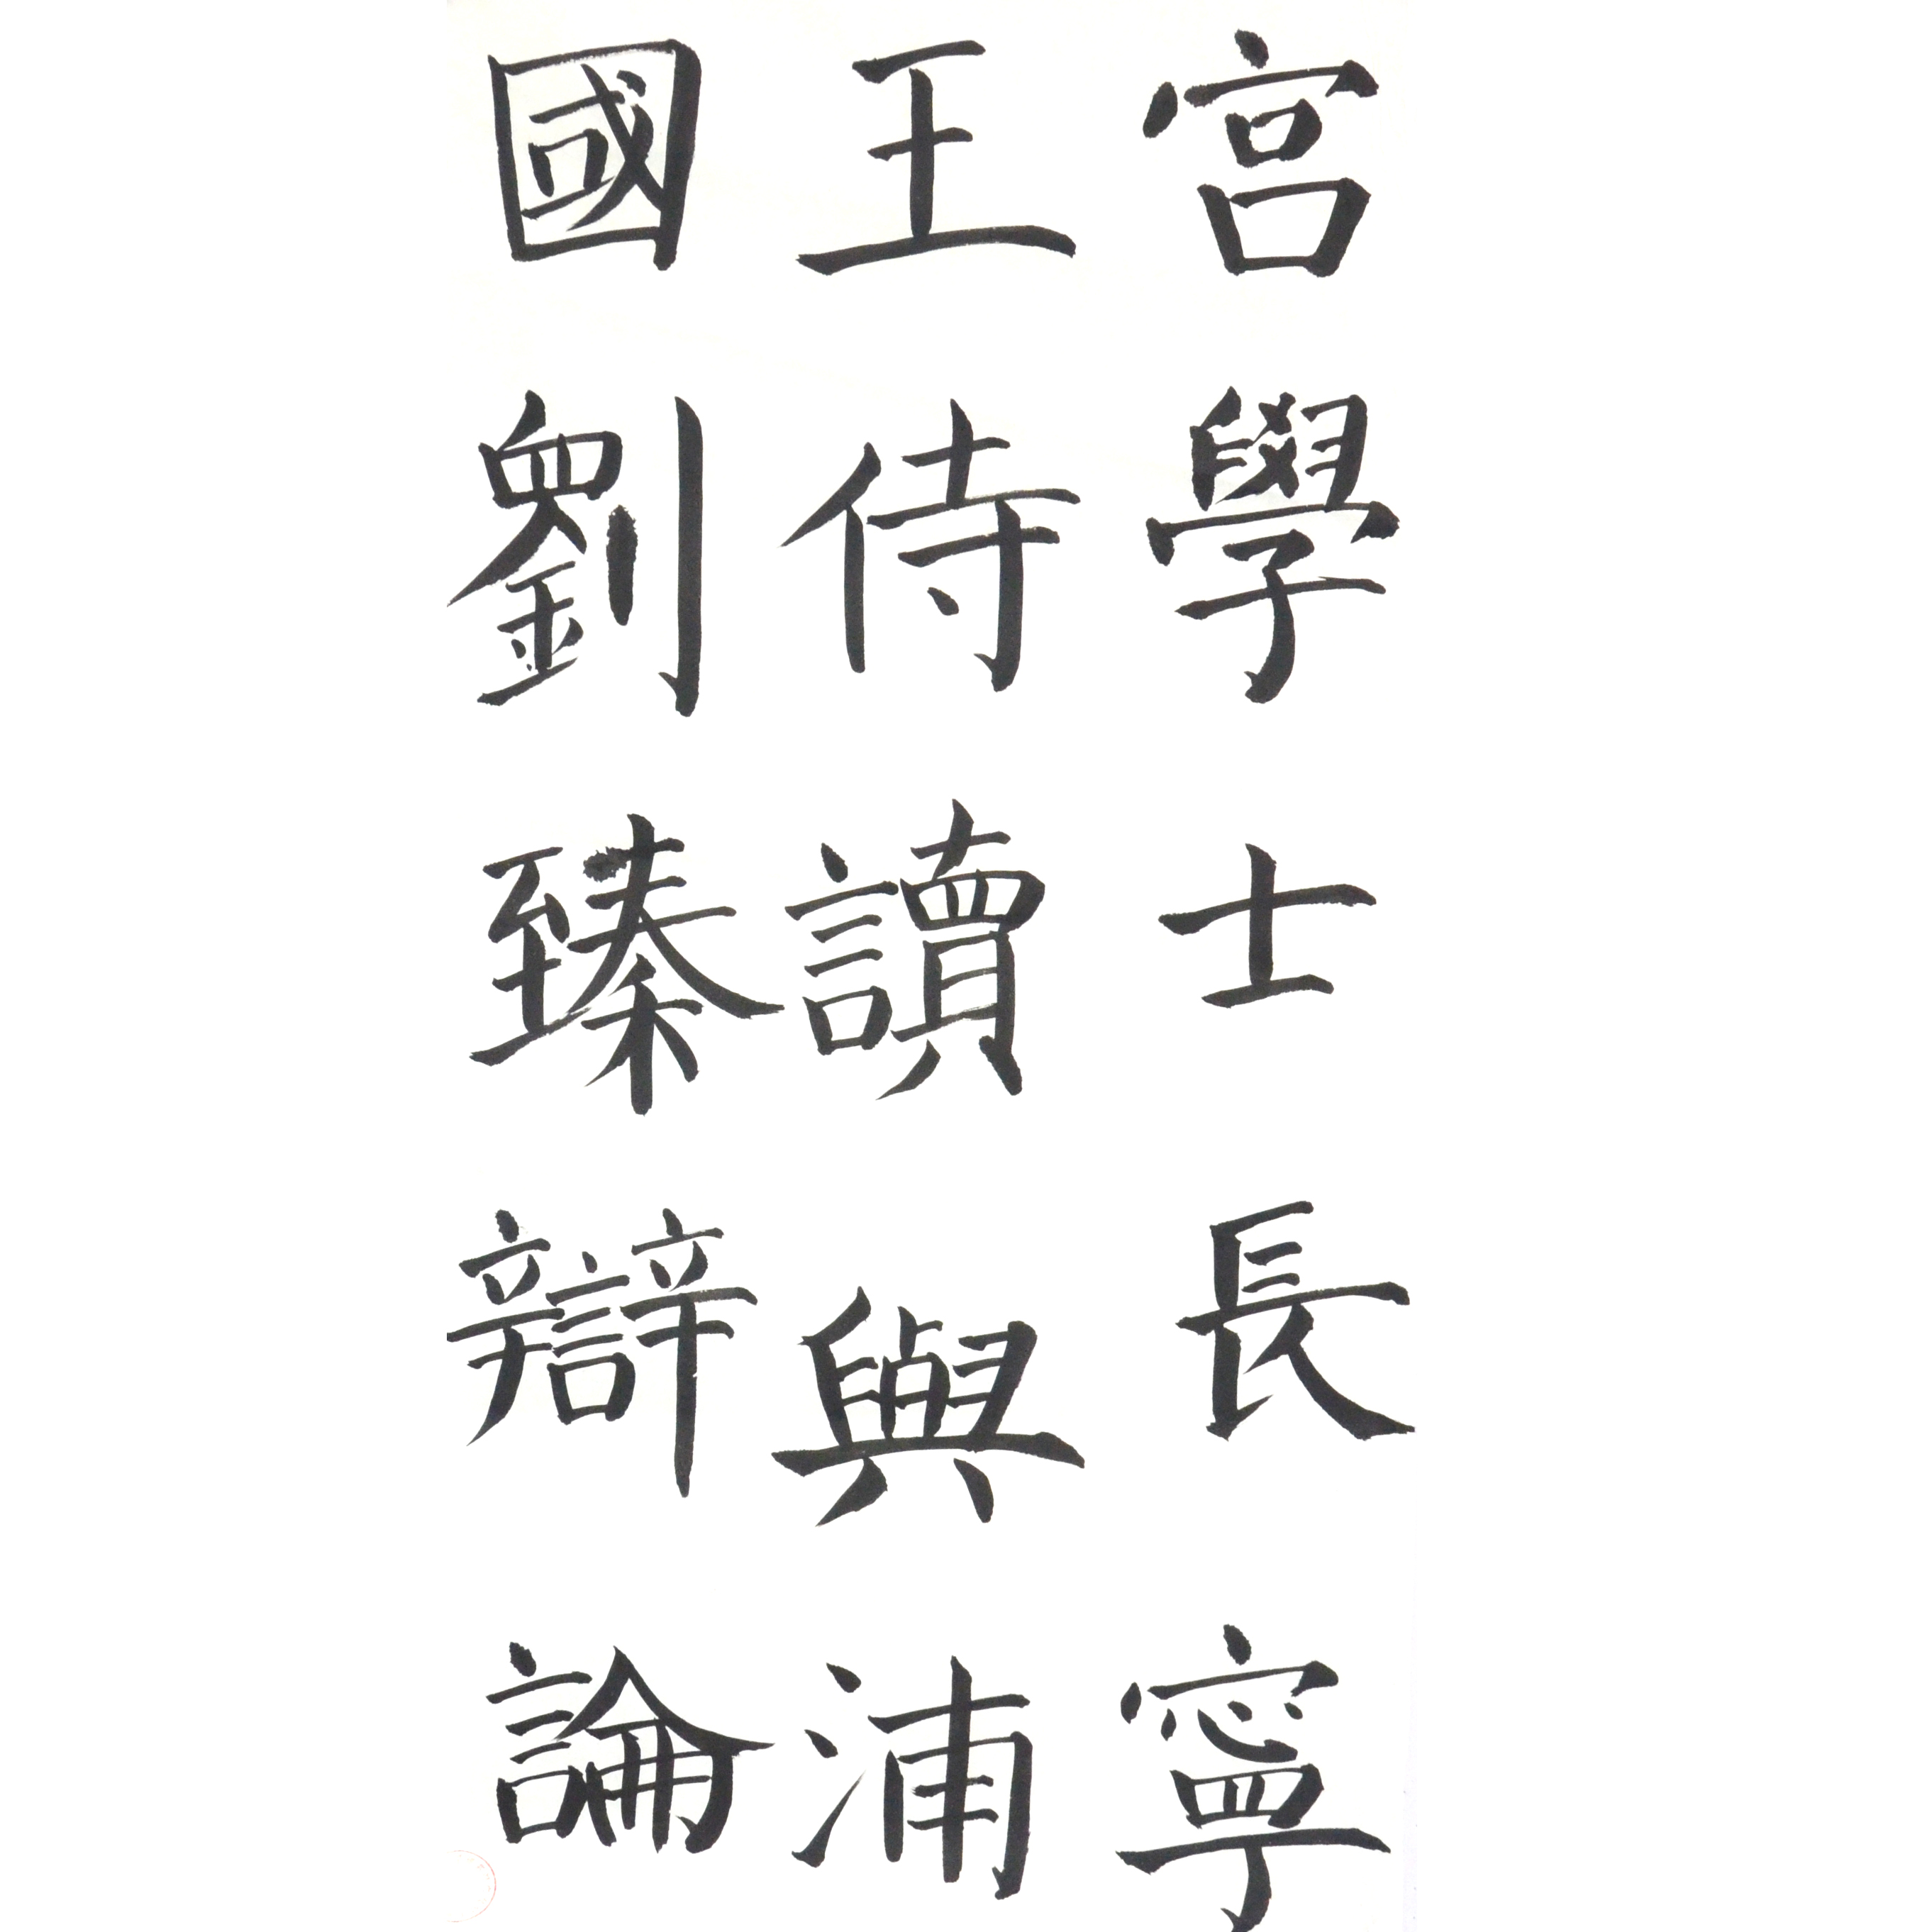 宮學士長寧
王侍讀與浦
國劉臻辯論